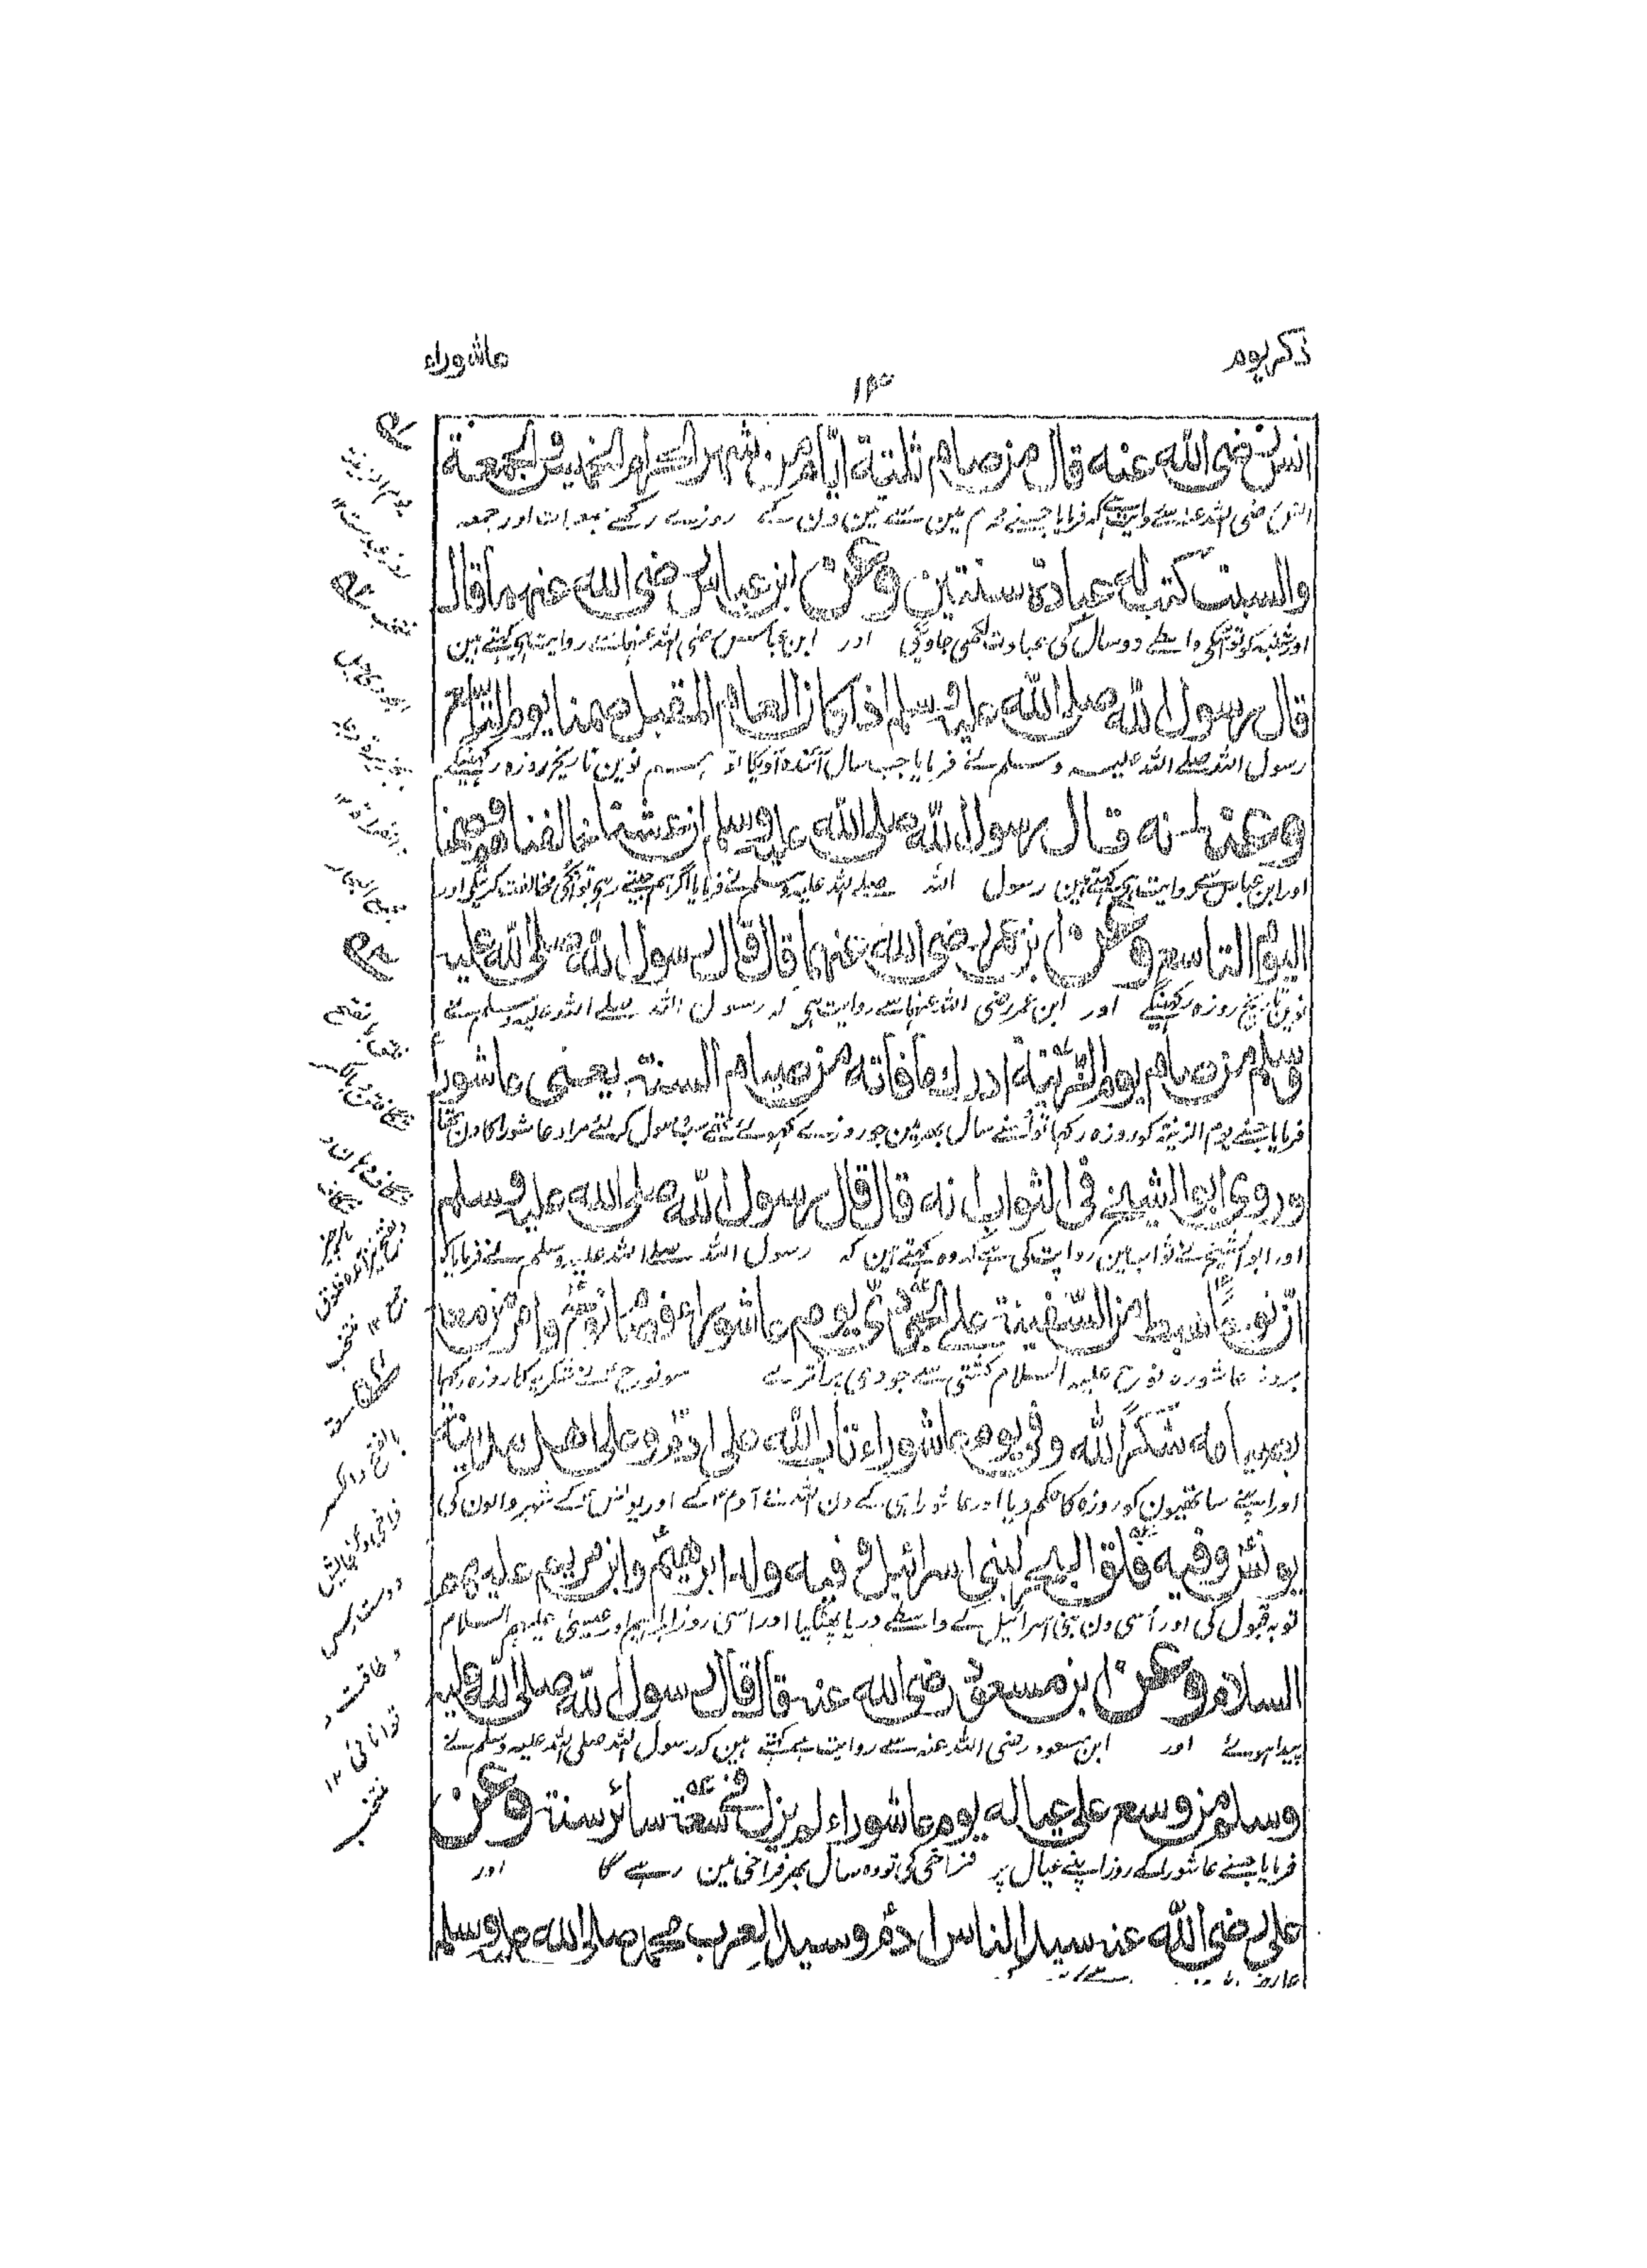 ذكر يوم
عاشوراء
انس رضی الله عنه قال من صام ثلثة ایام من شهر الحرام الخمیس والجمعة
انس رضی اللہ عنہ سے روایت ہے کہ فرمایا جسنے محرم مین سے تین دن کے روزے رکھے جمعرات اور جمعہ
والسبت کتب له عبادة سنتین وعن ابن عباس رضی الله عنهما قال
اور شنبہ کو تو اُسکی واسطے دو سال کی عبادت لکھی جاویگی اور ابن عباس رضی اللہ عنہما سے روایت ہی کہتے ہین
قال رسول الله صلی الله علیه وسلم اذا کان العام المقبل صمنا یوم التاسع
رسول اللہ صلے اللہ علیہ وسلم نے فرمایا جب سال آئندہ آویگا تو ہم نوین تاریخ روزہ رکھینگے
وعنه انه قال رسول الله صلی الله علیه وسلم ان عشنا خالفناهم وصمنا
اور ابن عباس سے روایت ہی کہتے ہین رسول اللہ صلے اللہ علیہ وسلم نے فرمایا اگر ہم جیتے رہی تو اُنکی مخالفت کرینگی اور
الیوم التاسع وعن ابن عمر رضی الله عنهما قال قال رسول الله صلی الله علیه
نوین تاریخ روزہ رکھینگے اور ابن عمر رضی اللہ عنہما سے روایت ہی کہ رسول اللہ صلے اللہ علیہ وسلم نے
وسلم من صام یوم الزینة ادرك ما فاته من صیام السنة یعنی عاشورا
فرمایا جسنے یوم الزینۃ کو روزہ رکھا تو اُسنے سال بھر مین جو روزے کھوئے تھے سب وصول کر لئے مراد عاشورا کا دن تھا
وروی ابو الشیخ فی الثواب انه قال قال رسول الله صلی الله علیه وسلم
اور ابو الشیخ نے ثواب مین روایت کی ہے کہ وہ کہتے ہین کہ رسول اللہ صلے اللہ علیہ وسلم نے فرمایا کہ
ان نوحا هبط من السفینة علی الجودی یوم عاشوراء فصام نوح وامر من معه
بروز عاشورہ نوح علیہ السلام کشتی سے جودی پر اترے سو نوح نے شکریہ کا روزہ رکھا
بصیامه شکرا لله وفی یوم عاشوراء تاب الله علی ادم وعلی اهل مدینة
اور اپنے ساتھیون کو روزہ کا حکم دیا اور عاشورا ہی کے دن اللہ نے آدم کے اور یونس کے شہر والون کی
یونس وفیه فلق البحر لبنی اسرائیل وفیه ولد ابرهیم وابن مریم علیهما
توبہ قبول کی اور اُسی دن بنی اسرائیل کے واسطے دریا پھٹ گیا اور اسی روز ابراہیم اور عیسیٰ علیہم السلام
السلام وعن ابن مسعود رضی الله عنه قال قال رسول الله صلی الله علیه
پیدا ہوئے اور ابن مسعود رضی اللہ عنہ سے روایت ہے کہتے ہین کہ رسول اللہ صلی اللہ علیہ وسلم نے
وسلم من وسع علی عیاله یوم عاشوراء لم یزل فی سعة سائر سنته وعن
فرمایا جسنے عاشورا کے روز اپنے عیال پر فراخی کی تو وہ سال بھر فراخی مین رہے گا اور
علی رضی الله عنه سید الناس ادم وسید العرب محمد صلی الله علیه وسلم
یوم الزینة
منتخب
بالفتح
فراخی و گنجایش
دسترس
و طاقت و
توانائی ۱۲
منتخب